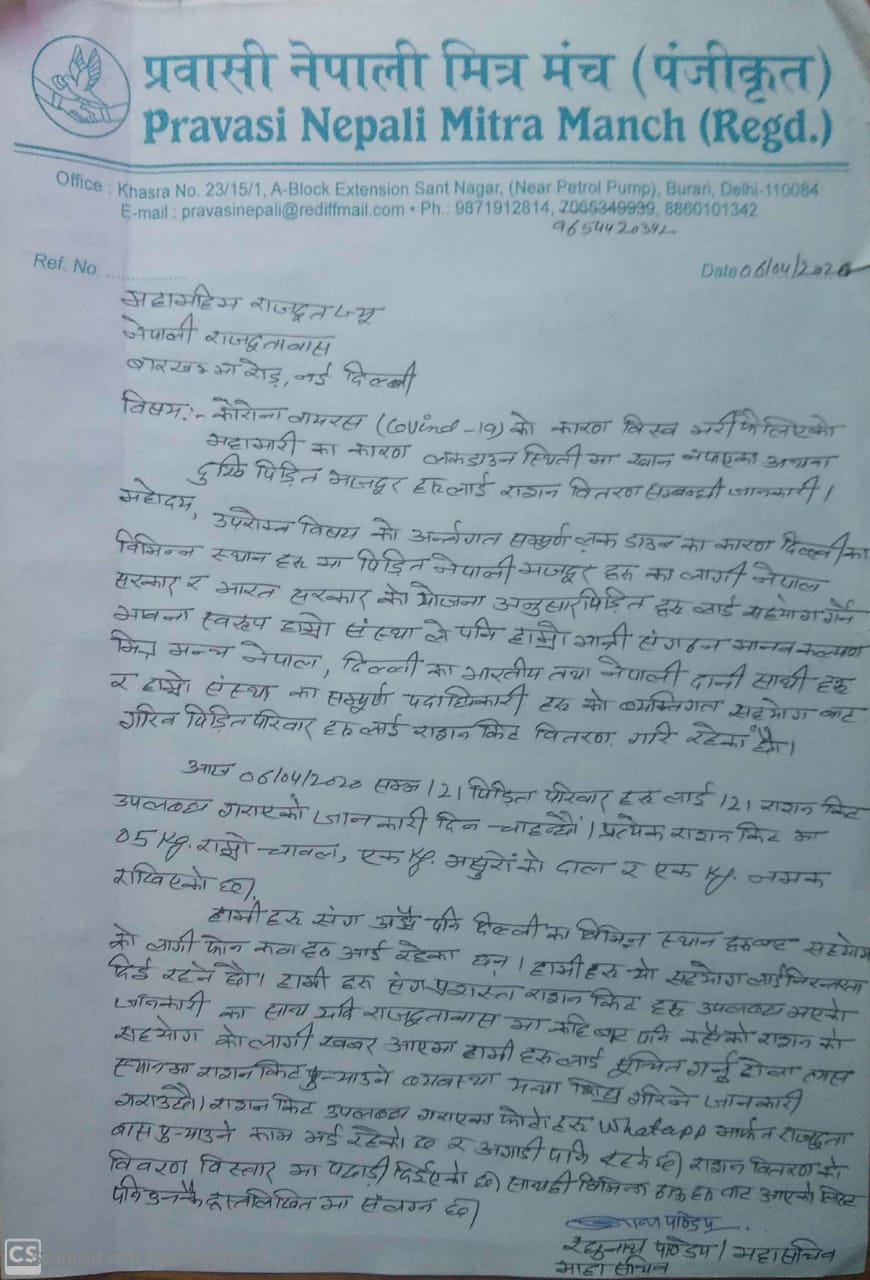 प्रवासी नेपाली मित्र मंच (पंजीकृत)
Pravasi Nepali Mitra Manch (Regd.)
Office : Khasra No. 23/15/1, A-Block Extension Sant Nagar, (Near Petrol Pump), Burari, Delhi-110084
E-mail : pravasinepali@rediffmail.com • Ph.: 9871912814, 7065349939, 8860101342
9654420342
Ref. No. ...............
Date 06/04/2020
महामहिम राजदूतज्यू
नेपाली राजदूतावास
बारखम्भा रोड़, नई दिल्ली
विषय:- कोरोना वायरस (Covind-19) को कारण विस्व भरी फैलिएको
महामारी का कारण लकडाउन स्थिती मा खान नपाएका अथवा
पिड़ित मजदूर हरुलाई राशन वितरण सम्बन्धी जानकारी।
महोदय,
उपरोक्त विषय को अर्न्तगत सम्पुर्ण लक डाउन का कारण दिल्ली का
विभिन्न स्थान हरु मा पिड़ित नेपाली मजदूर हरु का लागी नेपाल
सरकार र भारत सरकार को योजना अनुसार पिड़ित हरु लाई सहयोग गर्ने
भावना स्वरुप हाम्रो संस्था ले पनि हाम्रो मात्री संगठन मानव कल्याण
मित्र मन्च नेपाल, दिल्ली का भारतीय तथा नेपाली दानी साथी हरु
र हाम्रो संस्था का सम्पुर्ण पदाधिकारी हरु को व्यक्तिगत सहयोग बाट
गरिव पिड़ित परिवार हरु लाई राशन किट वितरण गरि रहेका छौं।
आज 06/04/2020 सम्म 121 पिड़ित परिवार हरु लाई 121 राशन किट
उपलब्ध गराएको जानकारी दिन चाहन्छौं। प्रत्येक राशन किट मा
05 Kg. राम्रो चावल, एक Kg. मसुरो को दाल र एक Kg. नमक
राखिएको छ।
हामी हरु संग अझै पनि दिल्ली का विभिन्न स्थान हरुबाट सहयोग
को लागी फोन कल हरु आई रहेका छन्। हामी हरु यो सहयोग लाई निरन्तरता
दिई रहने छौं। हामी हरु संग प्रशस्त राशन किट हरु उपलब्ध भएको
जानकारी का साथ यदि राजदूतावास मा कहि बाट पनि कसैको राशन को
सहयोग को लागी खबर आएमा हामी हरु लाई सूचित गर्नु होला त्यस
स्थानमा राशन किट पुर्‍याउने व्यवस्था गरिने जानकारी
गराउछौं। राशन किट उपलब्ध गराएका फोटो हरु Whatapp मार्फत राजदूता
वास पुर्‍याउने काम भई रहेको छ र अगाडी पनि रहने छ। राशन वितरण को
विवरण विस्तार मा पठाई दिईएको छ। साथै विभिन्न ठाऊ हरु बाट आएको लिस्ट
पनि उनकै हस्तलिखित मा संलग्न छ।
पाण्डेय
रघुनाथ पाण्डेय / महासचिव
माहा सचिव
CS